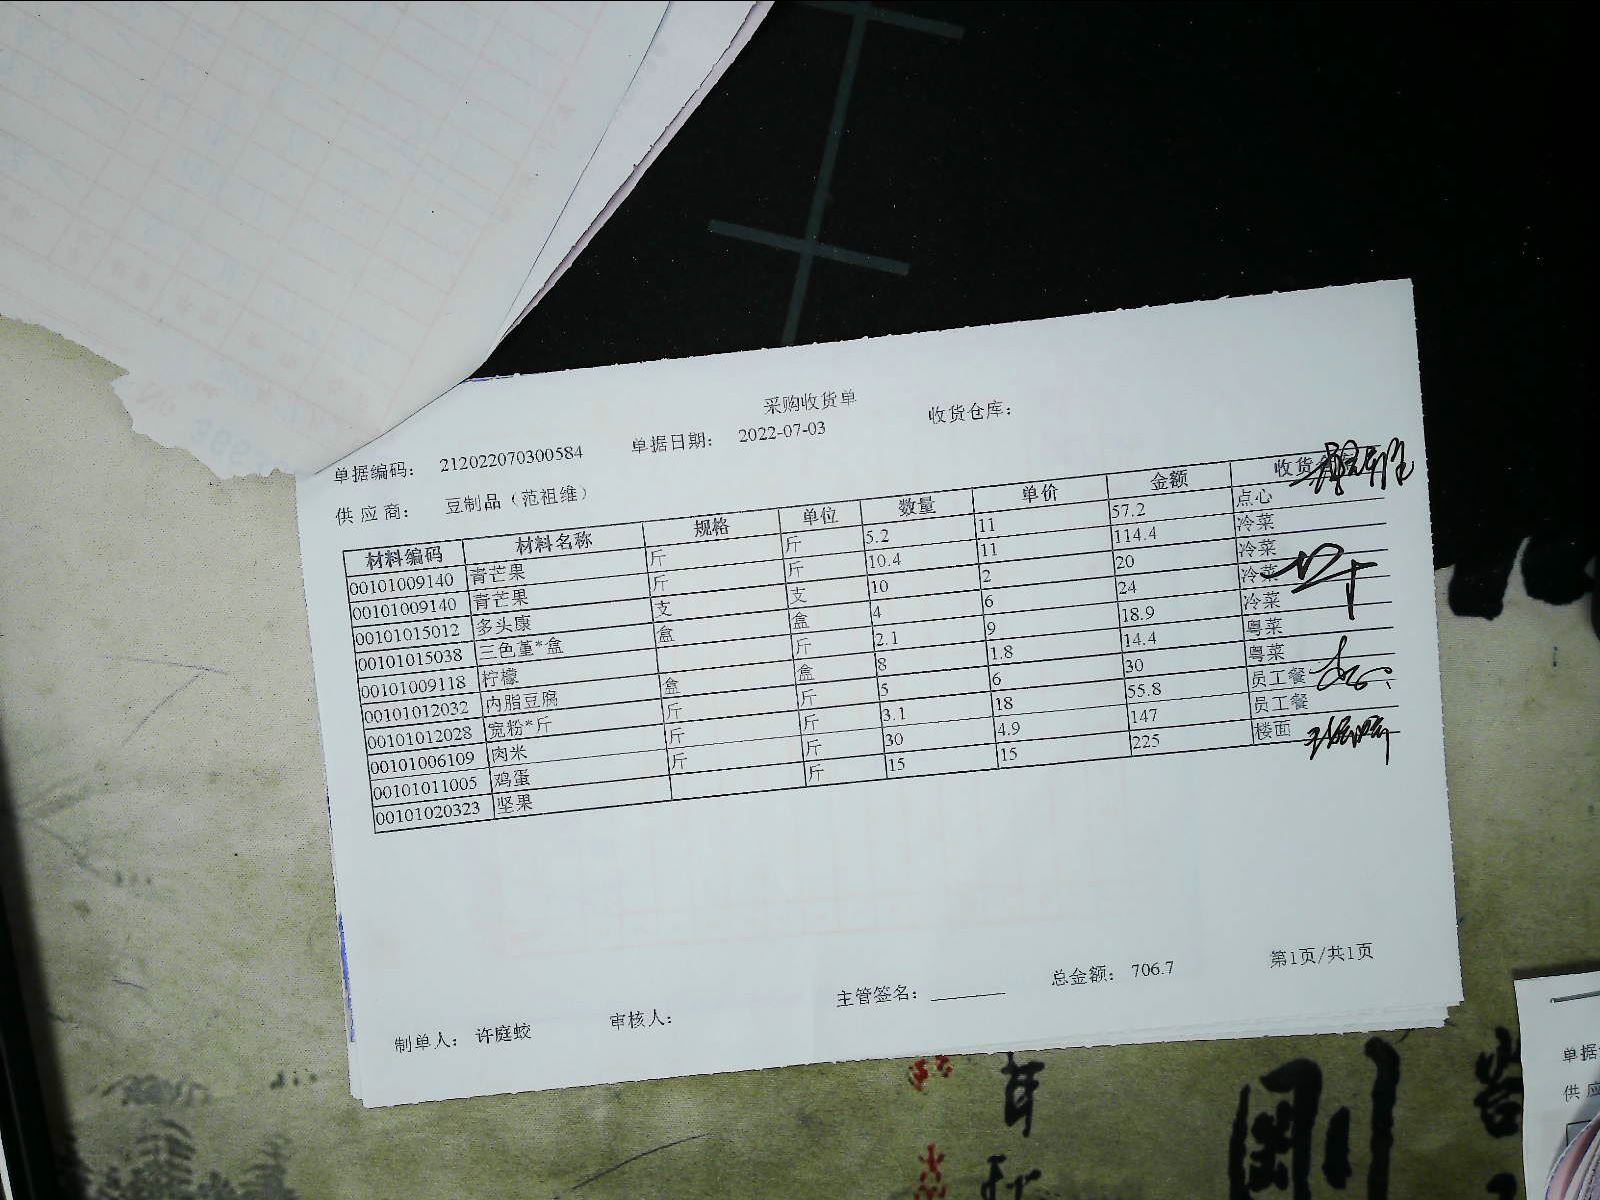 采购收货单
单据编码： 212022070300584 单据日期： 2022-07-03 收货仓库：
供 应 商： 豆制品（范祖维）
材料编码 材料名称 规格 单位 数量 单价 金额 收货
00101009140 青芒果 斤 斤 5.2 11 57.2 点心
00101009140 青芒果 斤 斤 10.4 11 114.4 冷菜
00101015012 多头康 支 支 10 2 20 冷菜
00101015038 三色堇*盒 盒 盒 4 6 24 冷菜
00101009118 柠檬 斤 2.1 9 18.9 冷菜
00101012032 内脂豆腐 盒 盒 8 1.8 14.4 粤菜
00101012028 宽粉*斤 斤 斤 5 6 30 粤菜
00101006109 肉米 斤 斤 3.1 18 55.8 员工餐
00101011005 鸡蛋 斤 斤 30 4.9 147 员工餐
00101020323 坚果 斤 15 15 225 楼面
制单人： 许庭蛟 审核人： 主管签名： 总金额： 706.7 第1页/共1页
单据
供 应
剛